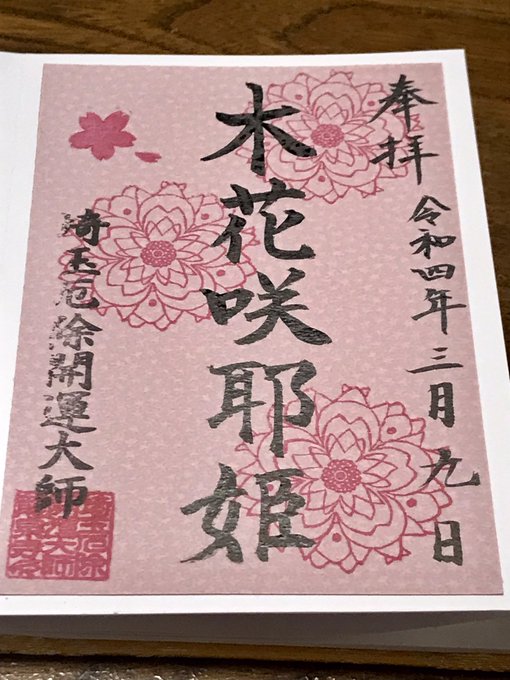 奉拝
令和四年三月九日
木花咲耶姫
埼玉厄除開運大師